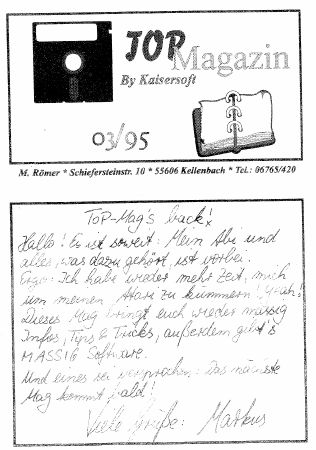 TOP
Magazin
By Kaisersoft
03/95
M. Römer * Schiefersteinstr. 10 * 55606 Kellenbach * Tel.: 06765/420
ToP-Mag's back!
Hallo! Es ist soweit: Mein Abi und
alles, was dazu gehört, ist vorbei.
Ergo: Ich habe wieder mehr Zeit, mich
um meinen Atari zu kümmern! Yeah!
Dieses Mag bringt euch wieder massig
Infos, Tips & Tricks, außerdem gibt's
MASSIG Software.
Und eines sei versprochen: Das nächste
Mag kommt bald!
Viele Grüße: Markus